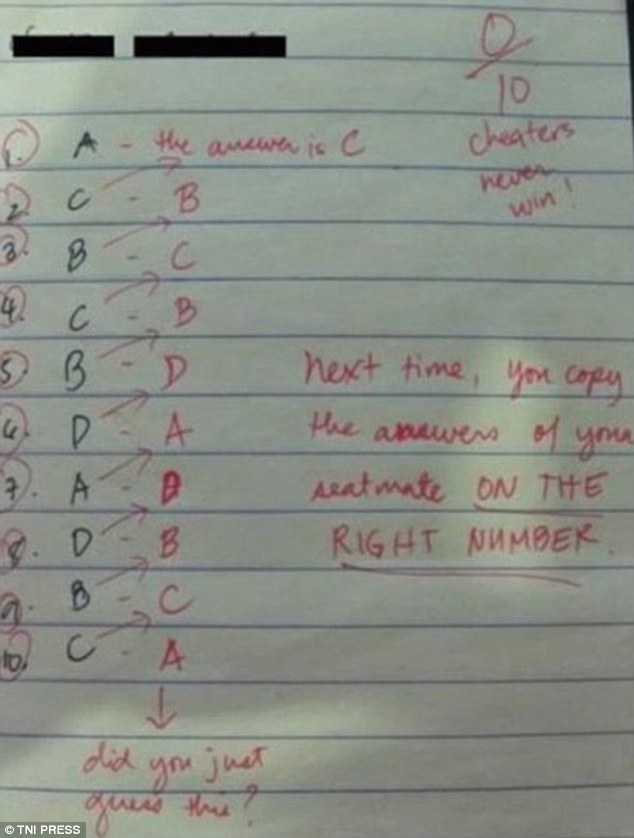 0/10
1. A - the answer is C
cheaters
never
win!
2. C - B
3. B - C
4. C - B
5. B - D
next time, you copy
6. D - A
the answers of your
7. A - D
seatmate ON THE
8. D - B
RIGHT NUMBER.
9. B - C
10. C - A
did you just
guess this?
© TNI PRESS